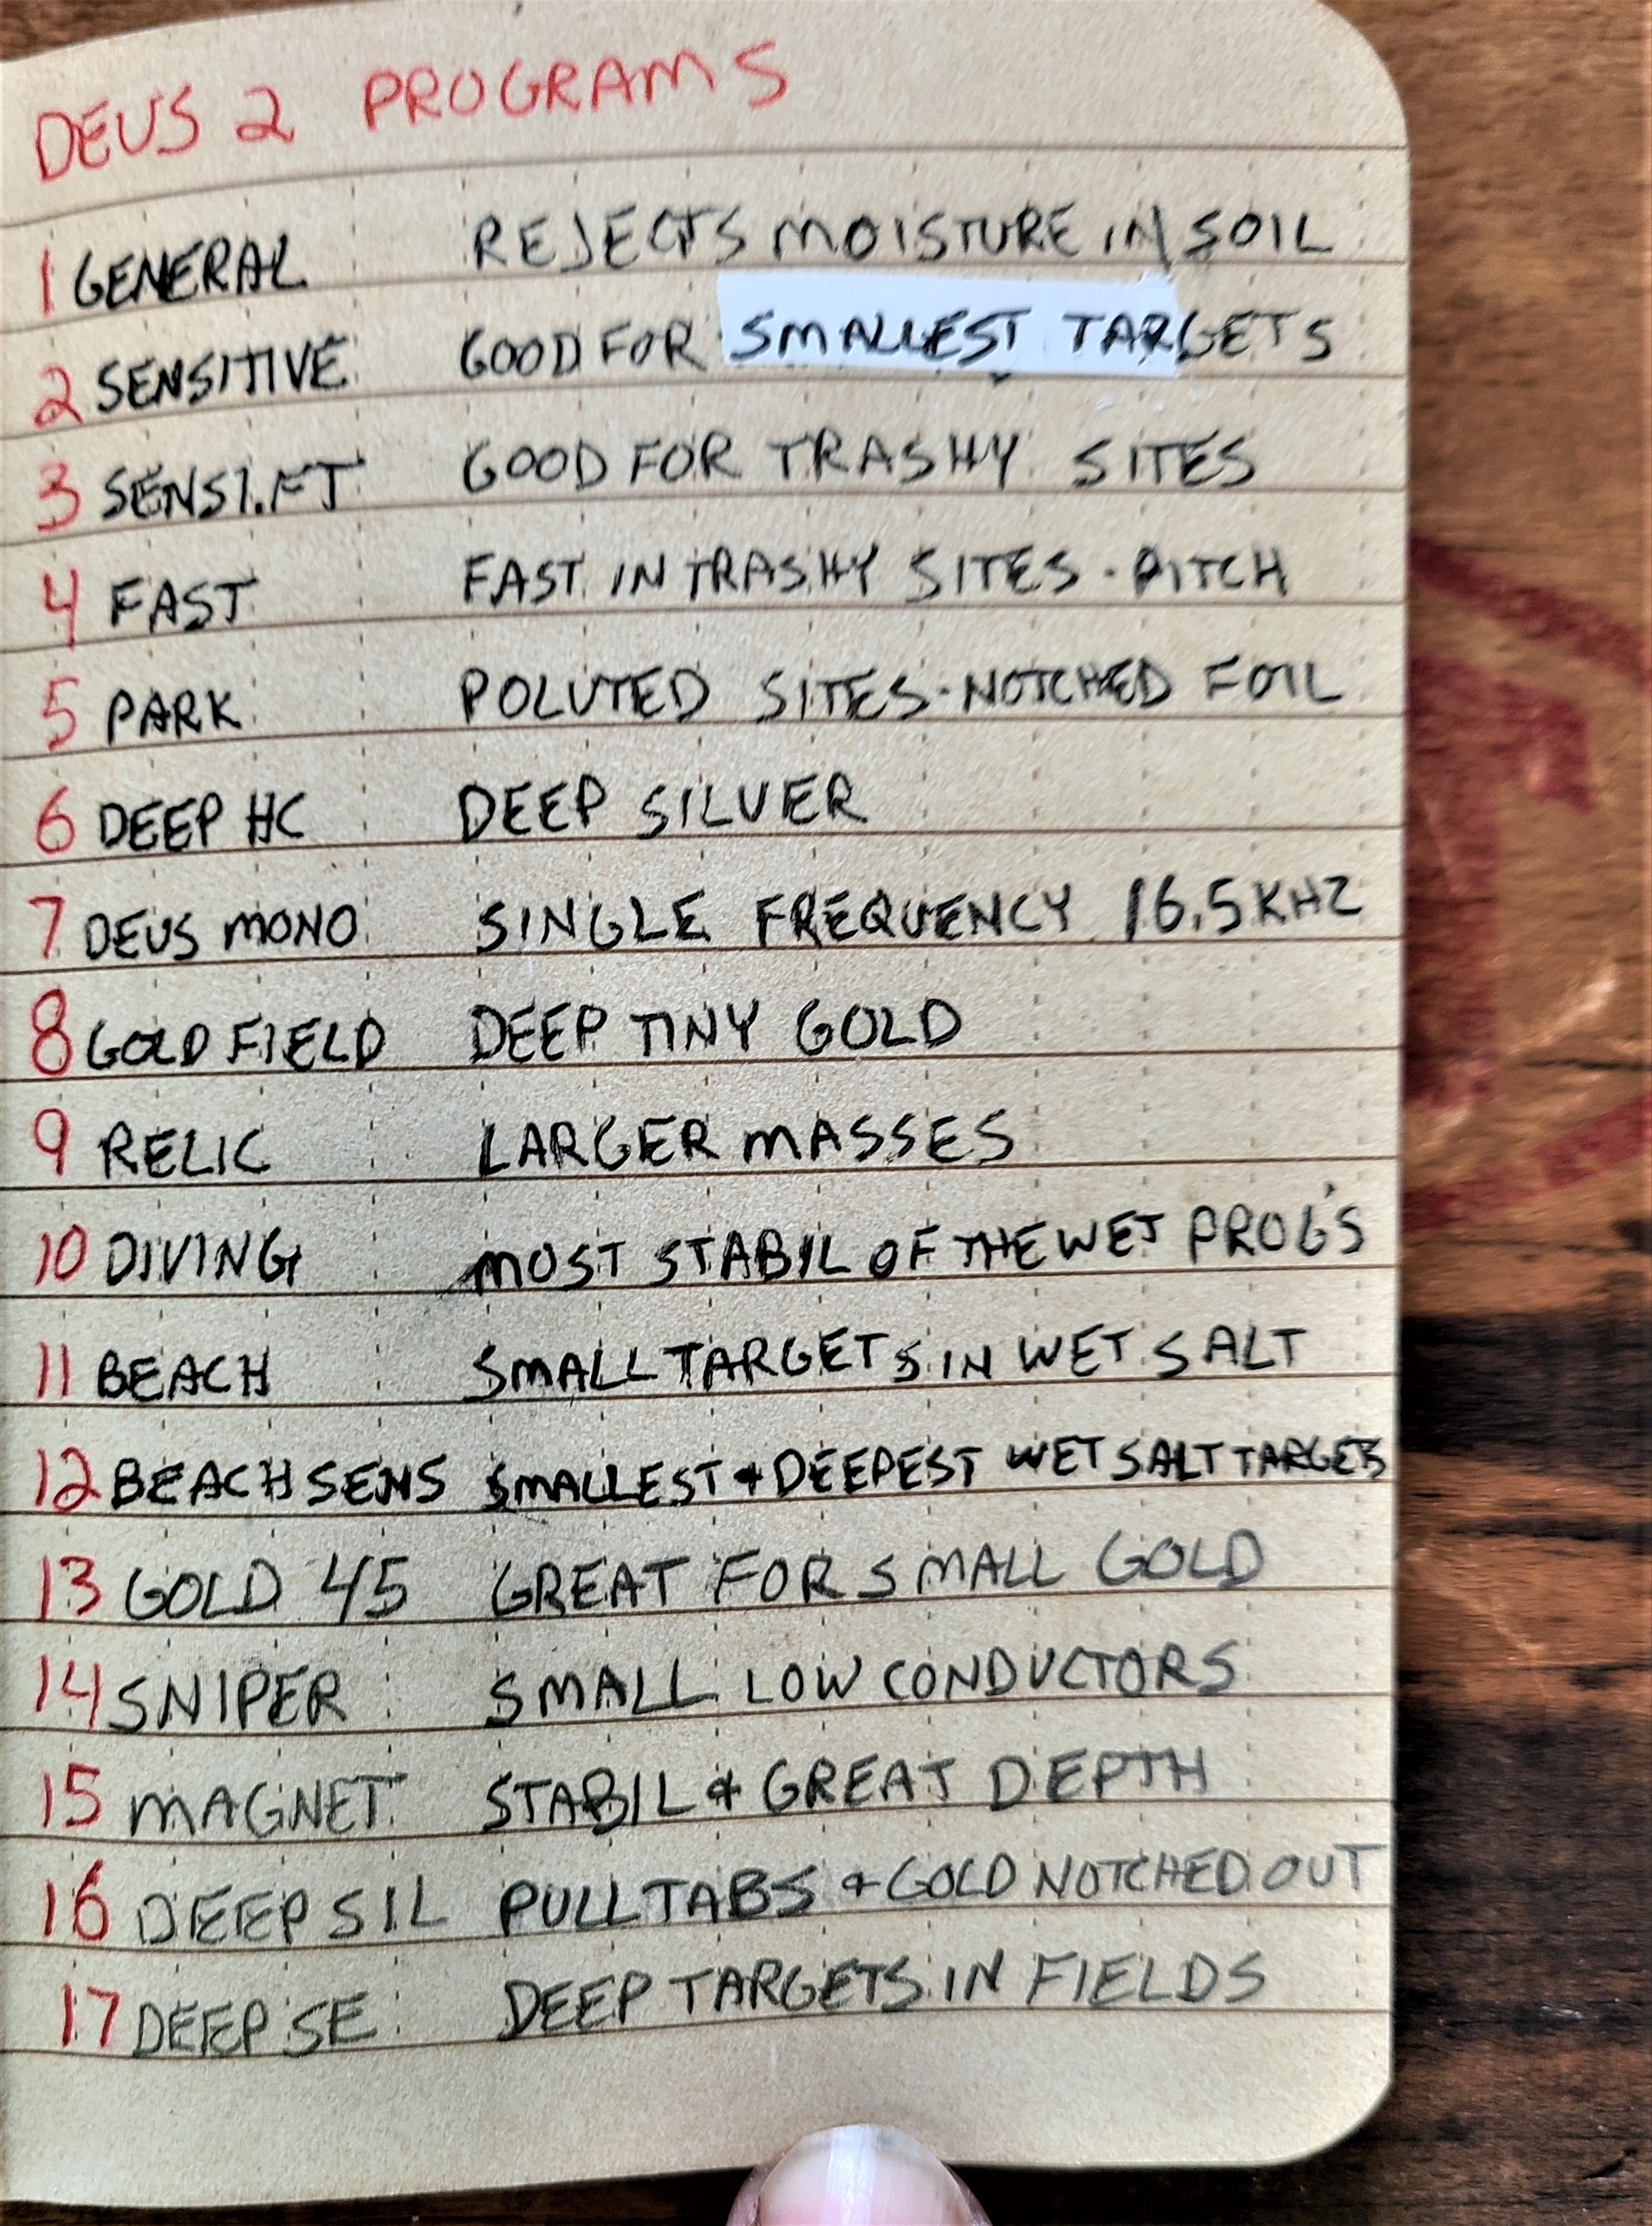 DEUS 2 PROGRAMS
1 GENERAL REJECTS MOISTURE IN SOIL
2 SENSITIVE GOOD FOR SMALLEST TARGETS
3 SENSI.FT GOOD FOR TRASHY SITES
4 FAST FAST IN TRASHY SITES - PITCH
5 PARK POLUTED SITES - NOTCHED FOIL
6 DEEP HC DEEP SILVER
7 DEUS MONO SINGLE FREQUENCY 16.5 KHZ
8 GOLD FIELD DEEP TINY GOLD
9 RELIC LARGER MASSES
10 DIVING MOST STABIL OF THE WET PROG'S
11 BEACH SMALL TARGETS IN WET SALT
12 BEACH SENS SMALLEST & DEEPEST WET SALT TARGETS
13 GOLD 45 GREAT FOR SMALL GOLD
14 SNIPER SMALL LOW CONDUCTORS
15 MAGNET STABIL & GREAT DEPTH
16 DEEP SIL PULLTABS & GOLD NOTCHED OUT
17 DEEP SE DEEP TARGETS IN FIELDS